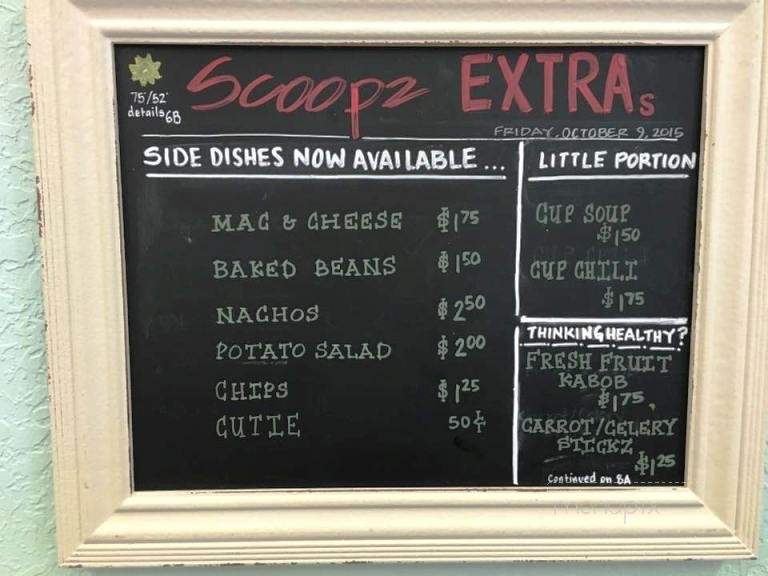 75/52°
details 6B
Scoopz EXTRAs
FRIDAY, OCTOBER 9, 2015
SIDE DISHES NOW AVAILABLE...
MAC & CHEESE $1.75
BAKED BEANS $1.50
NACHOS $2.50
POTATO SALAD $2.00
CHIPS $1.25
CUTIE 50¢
LITTLE PORTION
CUP SOUP
$1.50
CUP CHILI
$1.75
THINKING HEALTHY?
FRESH FRUIT
KABOB
$1.75
CARROT/CELERY
STICKZ
$1.25
Continued on 8A
menupix